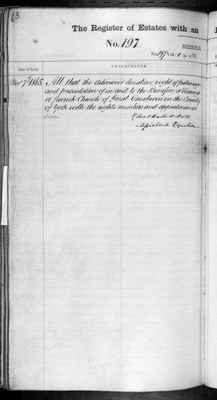 63
The Register of Estates with an
No. 197.
REFERENCE
Date of Entry.
DESCRIPTION
Novr 7th 1865
All that the Advowson donation right of patronage
and presentation of in and to the Benefice
or Parish Church of Great Ouseburn in the County
of York with the rights members and appurtenances
Assistant Registrar